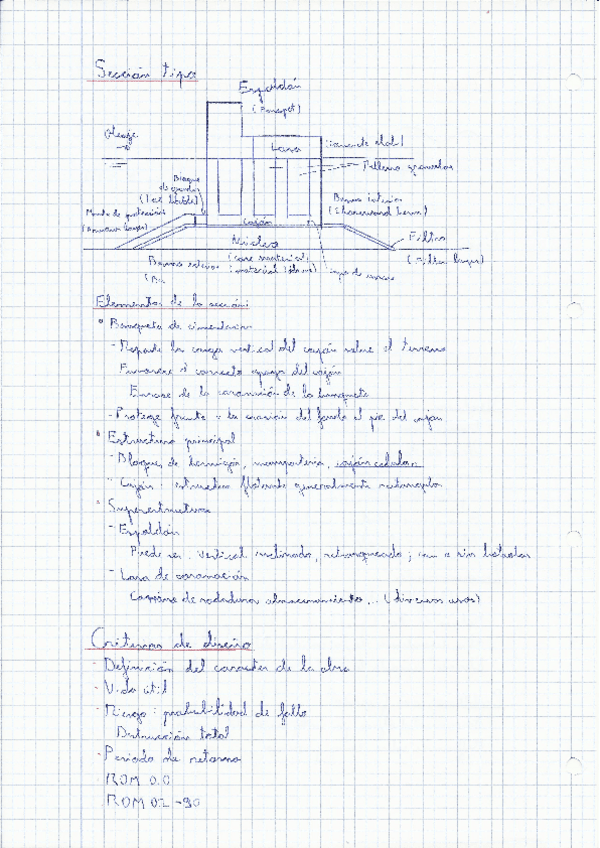 Sección tipo
Espaldón
(Parapet)
Oleaje
Losa
Relleno granular
Bloque
de guarda
(Toe block)
Manto de protección
(Armour layer)
Berma interior
(Shoreward berm)
Cajón
Núcleo
(core material)
Filtro
(Filter layer)
Berma exterior
Capa de enrase
Elementos de la sección:
Banqueta de cimentación
- Reparte la carga vertical del cajón sobre el terreno
Favorece el correcto apoyo del cajón
Enrase de la coronación de la banqueta
- Protege frente a la erosión del fondo al pie del cajón
Estructura principal
- Bloques de hormigón, mampostería, cajón celular
- Cajón: estructura flotante generalmente rectangular
Superestructura
- Espaldón
Puede ser: vertical, inclinado, retranqueado; con o sin botaolas
- Losa de coronación
Camino de rodadura, almacenamiento... (diversos usos)
Criterios de diseño
- Definición del carácter de la obra
- Vida útil
- Riesgo: probabilidad de fallo
Destrucción total
- Periodo de retorno
ROM 0.0
ROM 02-90